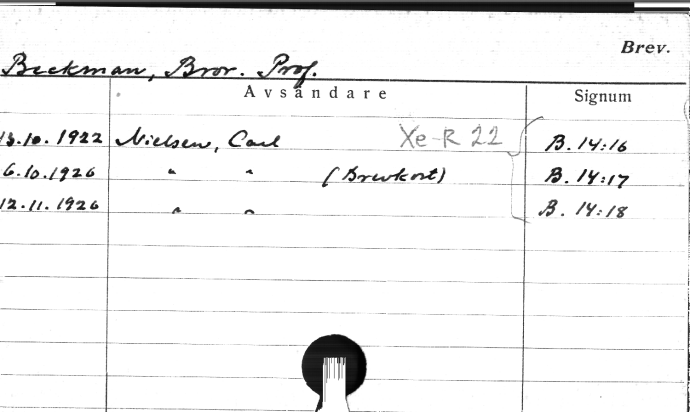 Brev.
Beckman, Bror. Prof.
Avsändare Signum
13.10.1922 Nielsen, Carl Xe-R 22 B. 14:16
6.10.1926 " " (Brevkort) B. 14:17
12.11.1926 " " B. 14:18